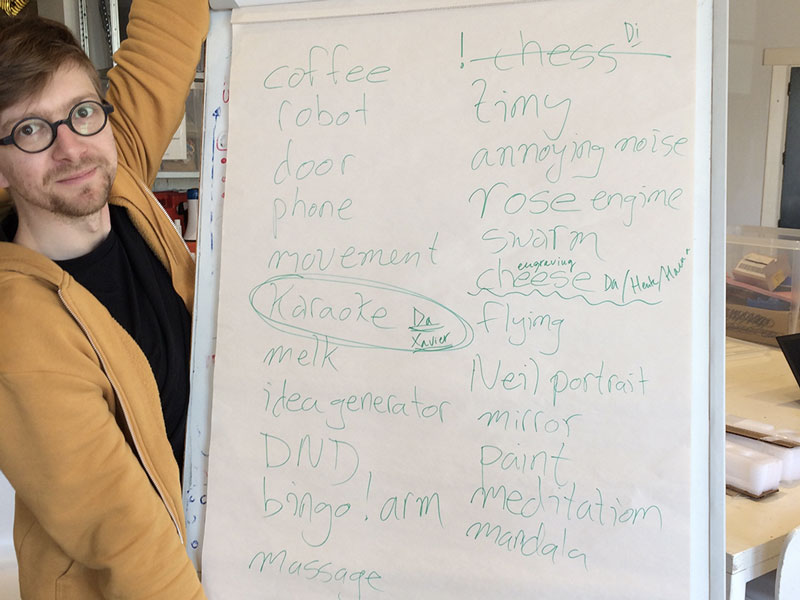 coffee
robot
door
phone
movement
Karaoke Da
Xavier
melk
idea generator
DND
bingo! arm
massage
! chess Di
zimy
annoying noise
rose engine
swarm
engraving
cheese Da/Henk/
flying
Neil portrait
mirror
paint
meditation
mandala